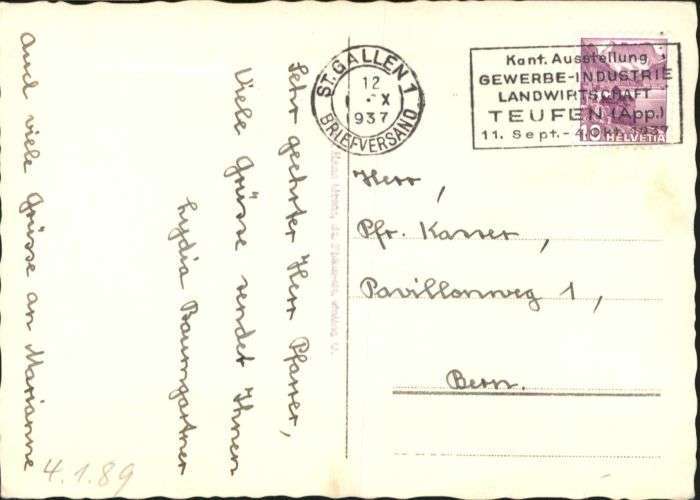 Sehr geehrter Herr Pfarrer,
Viele Grüsse sendet Ihnen
Lydia Baumgartner
Auch viele Grüsse an Marianne
4.1.89
ST. GALLEN 1
12
IX
1937
BRIEFVERSAND
Kant. Ausstellung
GEWERBE-INDUSTRIE
LANDWIRTSCHAFT
TEUFEN (App.)
11. Sept. - 4. Okt. 1937
HELVETIA
Herr,
Pfr. Kasser,
Pavillonweg 1,
Bern.